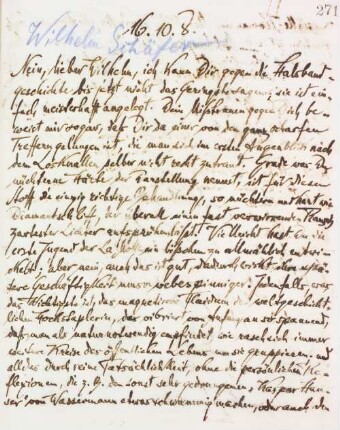 271
16.10.8.
Wilhelm Schäfer
Nein, lieber Wilhelm, ich kann Dir gegen die Halsband-
geschichte bis jetzt nicht das Geringste sagen; sie ist ein-
fach meisterhaft angelegt. Dein Mißtrauen gegen Dich be-
weist mir sogar, daß Dir da einer von den ganz scharfen
Treffern gelungen ist, die man sich im ersten Augenblick nach
dem Losknallen selber nicht recht zutraut. Grade was Du
nüchterne Härte der Darstellung nennst, ist für diesen
Stoff die einzig richtige Behandlung, so nüchtern und hart wie
Diamantschliff, der überall einen fast verwirrenden
zartester Lichter aufsprühen läßt. Vielleicht hast Du die
erste Jugend der La Motte ein bißchen zu allmählich entwi-
ckelt; aber nein, auch das ist gut, dadurch wirkt ihre spä-
tere Geschäftigkeit umso webespinniger. Jedenfalls, was
das Wichtigste ist, das magnetische Fluidum der weltgeschicht-
lichen Hochstaplerin, das vibriert von Anfang an so spannend,
daß man als naturnotwendig empfindet, wie rasch sich immer
weitere Kreise des öffentlichen Lebens um sie gruppieren. Und
alles durch reine Tatsächlichkeit, ohne die persönlichen Re-
flexionen, die z. B. den sonst sehr gedrungenen Kaspar Hau-
ser von Wassermann etwas schwammig machen, oder auch den